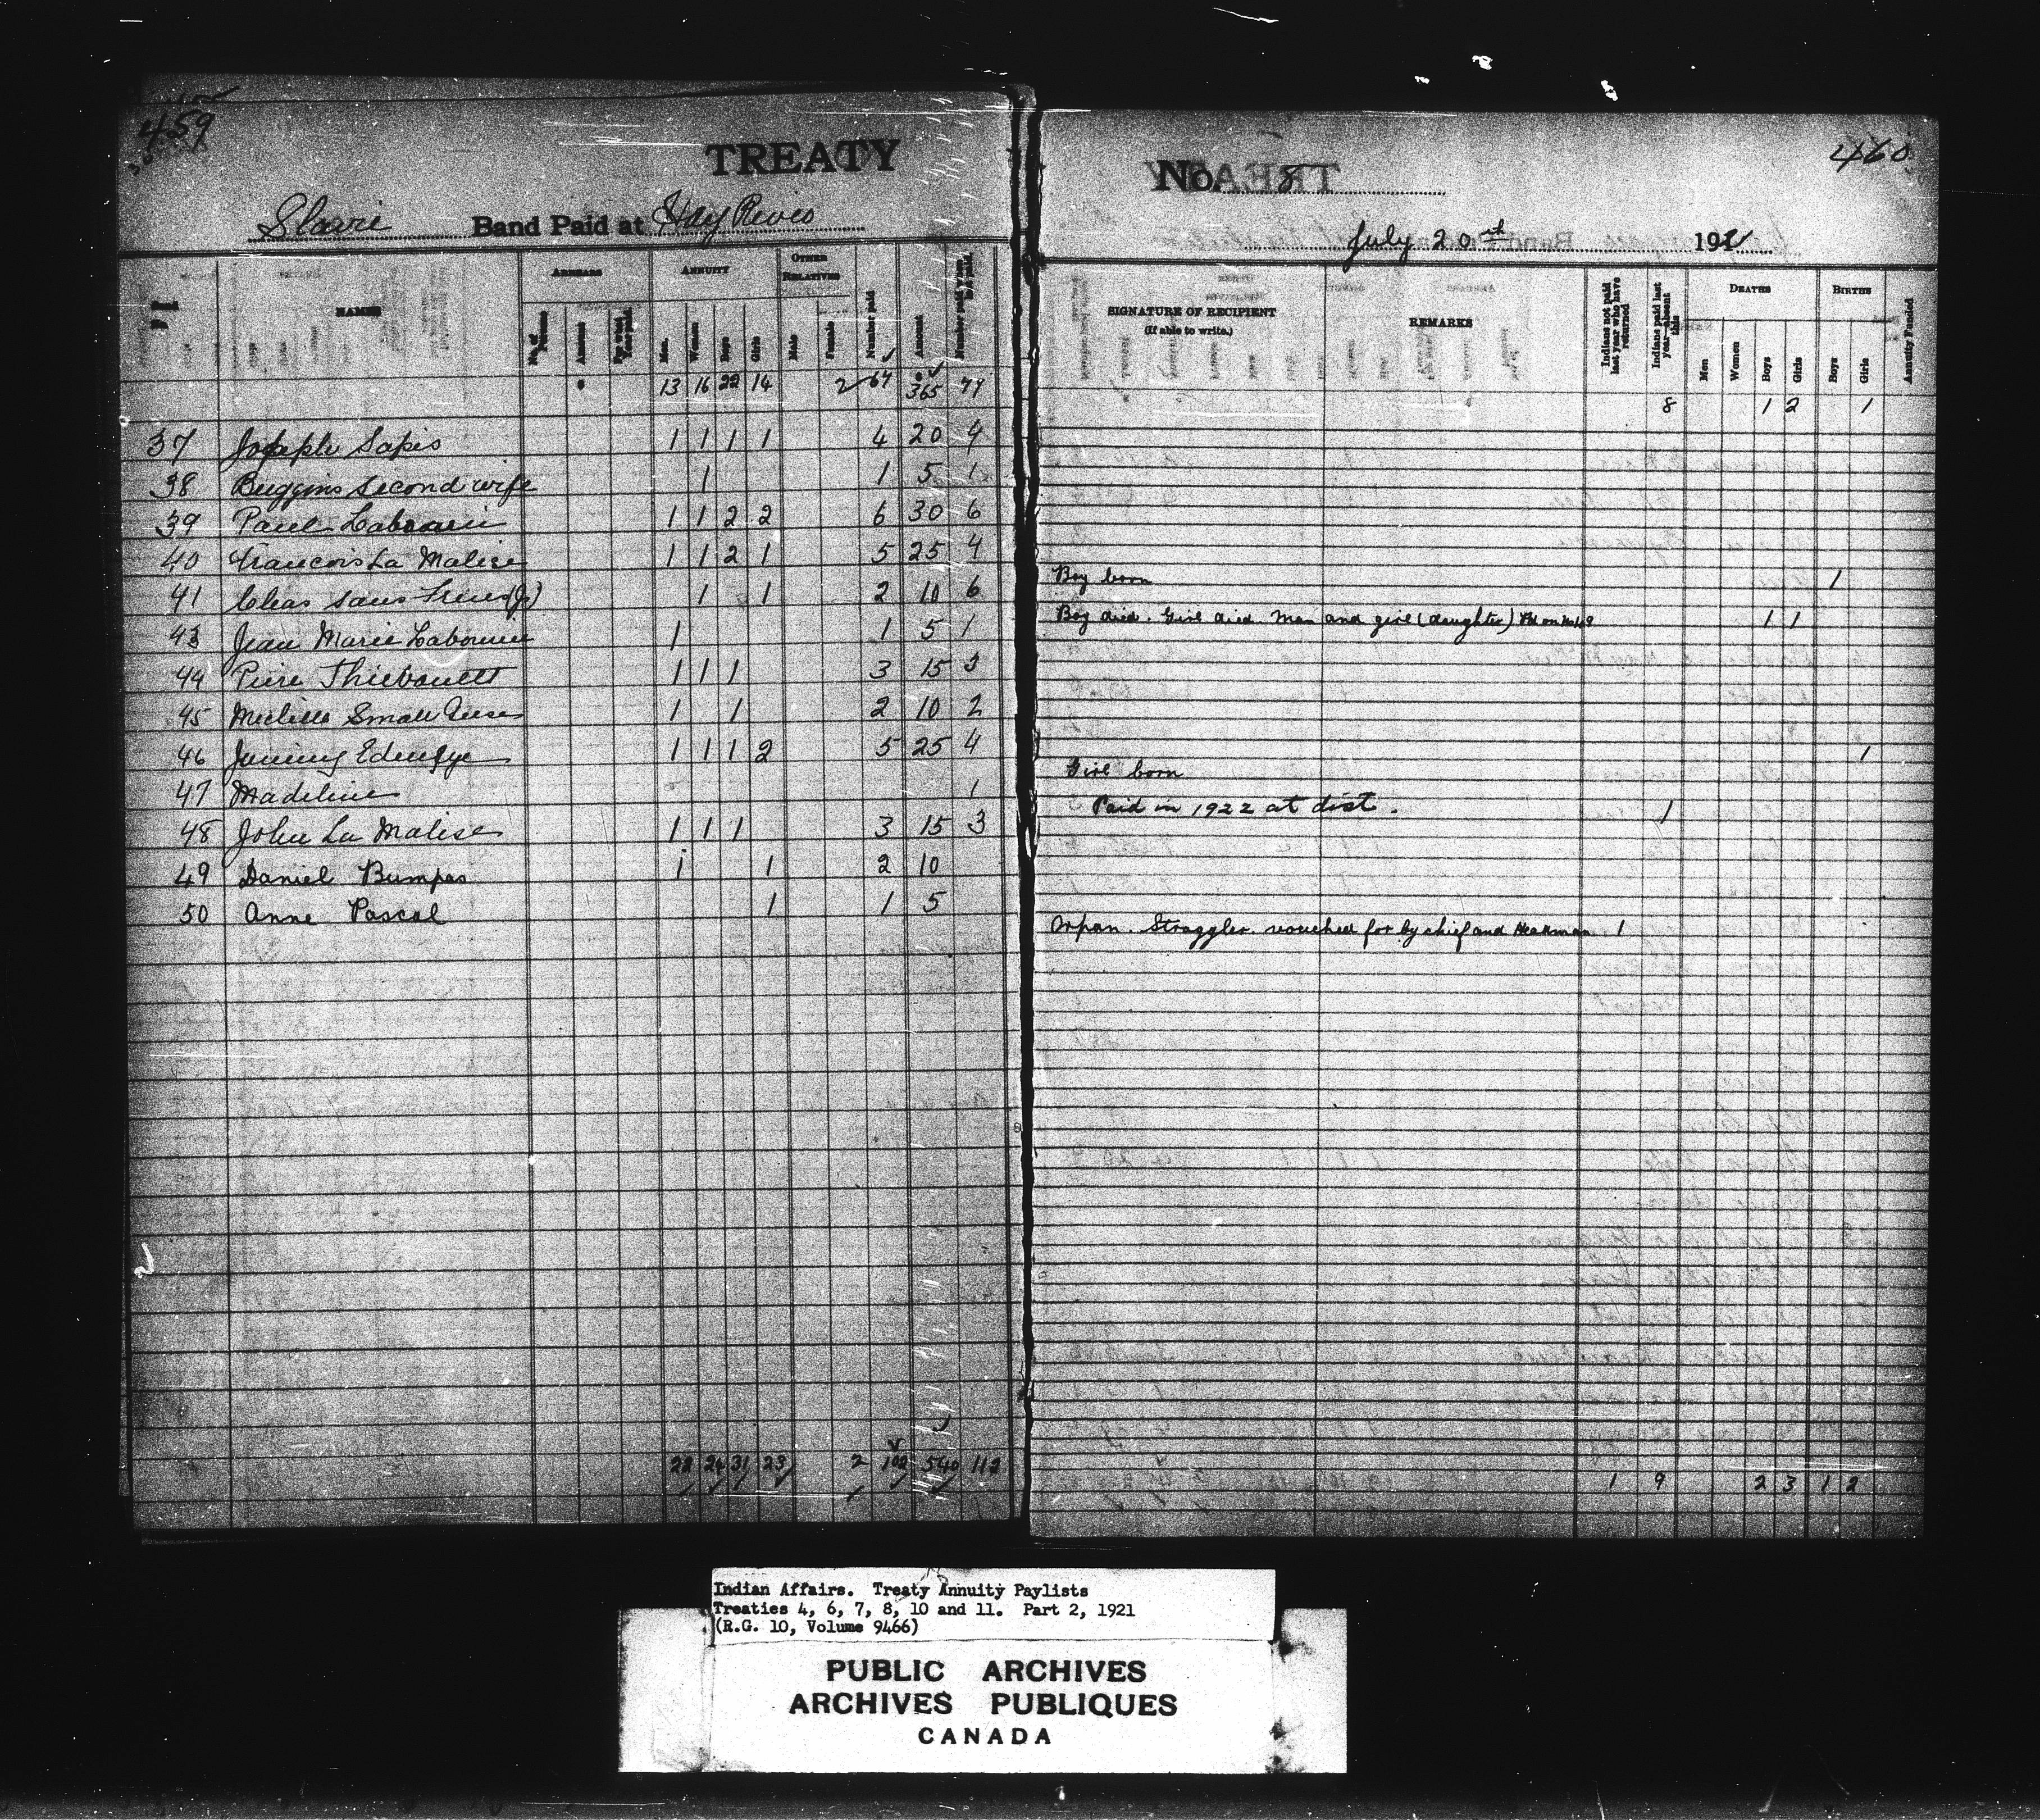 459
TREATY
Slavie Band Paid at Hay River
NAMES
ARREARS ANNUITY OTHER RELATIVES
No. of Persons Amount For what Year paid Men. Women Boys Girls Male Female Number paid Amount Number paid last year
13 16 22 14 2 67 365 79
37 Joseph Sapis 1 1 1 1 4 20 4
38 Buggins second wife 1 1 5 1
39 Paul 1 1 2 2 6 30 6
40 Francois La Malise 1 1 2 1 5 25 4
41 Chas sans (Jr) 1 1 2 10 6
43 Jean Marie 1 1 5 1
44 Pierre Thiebault 1 1 1 3 15 3
45 Small 1 1 2 10 2
46 1 1 1 2 5 25 4
47 Madeline 1
48 John La Malise 1 1 1 3 15 3
49 Daniel Bumpas 1 1 2 10
50 Anne Pascal 1 1 5
22 24 31 23 2 102 540 112
460
No. 8
July 20th 192
SIGNATURE OF RECIPIENT
(If able to write.)
REMARKS
Indians not paid last year who have returned
Indians paid last year absent this
DEATHS BIRTHS
Men Women Boys Girls Boys Girls Annuity Funded
8 1 2 1
Boy born 1
Boy died. Girl died Man and girl (daughter) Pd on No 49 1 1
Girl born 1
Paid in 1922 at dist. 1
Orpan. Straggler. vouched for by chief and Headman 1
1 9 2 3 1 2
Indian Affairs. Treaty Annuity Paylists
Treaties 4, 6, 7, 8, 10 and 11. Part 2, 1921
(R.G. 10, Volume 9466)
PUBLIC ARCHIVES
ARCHIVES PUBLIQUES
CANADA